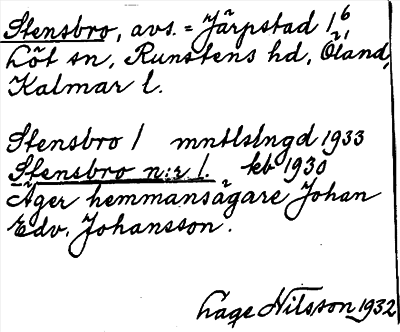 Stensbro, avs. = Järpstad 1⁶,
Löt sn, Runstens hd, Öland,
Kalmar l.
Stensbro 1 mntlslngd 1933
Stensbro n:r 1. kb 1930
Äger hemmansägare Johan
Edv. Johansson.
Håge Nilsson 1932